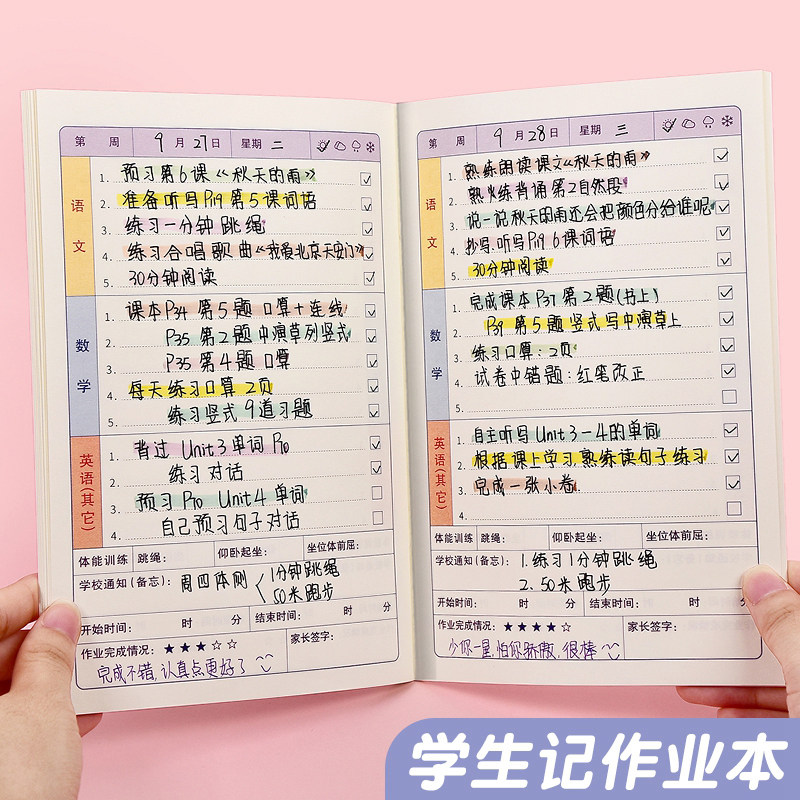 第 周 9月27日 星期 二
语文
1. 预习第6课《秋天的雨》
2. 准备听写P19第5课词语
3. 练习一分钟跳绳
4. 练习合唱歌曲《我爱北京天安门》
5. 30分钟阅读
数学
1. 课本P34 第5题口算+连线
2. P35 第2题中演草列竖式
3. P35 第4题口算
4. 每天练习口算2页
练习竖式9道习题
英语(其它)
1. 背过Unit3单词P10
2. 练习对话
3. 预习P10 Unit4单词
4. 自己预习句子对话
体能训练 跳绳: 仰卧起坐: 坐位体前屈:
学校通知(备忘): 周四体测 1分钟跳绳
50米跑步
开始时间: 时 分 结束时间: 时 分
作业完成情况: ★★★☆☆ 家长签字:
完成不错,认真点更好了
第 周 9月28日 星期 三
语文
1. 熟练朗读课文《秋天的雨》
2. 熟练背诵第2自然段
3. 说一说秋天的雨还会把颜色分给谁呢
4. 抄写.听写P19 6课词语
5. 30分钟阅读
数学
1. 完成课本P37第2题(书上)
2. P39第5题竖式写中演草上
3. 练习口算:2页
4. 试卷中错题:红笔改正
5.
英语(其它)
1. 自主听写Unit3-4的单词
2. 根据课上学习,熟练读句子练习
3. 完成一张小卷.
4.
体能训练 跳绳: 仰卧起坐: 坐位体前屈:
学校通知(备忘): 1.练习1分钟跳绳
2.50米跑步
开始时间: 时 分 结束时间: 时 分
作业完成情况: ★★★★☆ 家长签字:
少你一星,怕你骄傲,很棒
学生记作业本